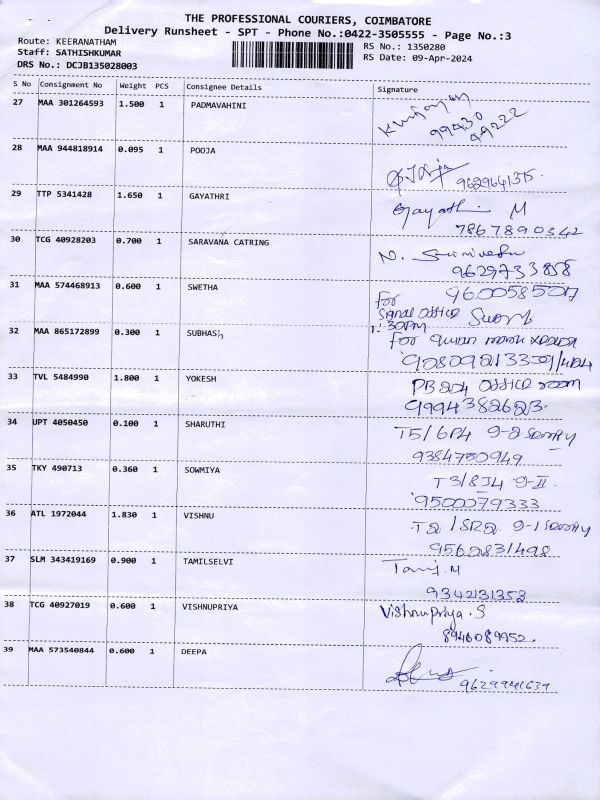 THE PROFESSIONAL COURIERS, COIMBATORE
Delivery Runsheet - SPT - Phone No.:0422-3505555 - Page No.:3
Route: KEERANATHAM
RS No.: 1350280
Staff: SATHISHKUMAR
RS Date: 09-Apr-2024
DRS No.: DCJB135028003
S No Consignment No Weight PCS Consignee Details Signature
27 MAA 301264593 1.500 1 PADMAVAHINI
99430
49222
28 MAA 944818914 0.095 1 POOJA
9629641375.
29 TTP 5341428 1.650 1 GAYATHRI Gayathri M
7867890342
30 TCG 40928203 0.700 1 SARAVANA CATRING N.
9629733858
31 MAA 574468913 0.600 1 SWETHA 9600585017
for
office
1:30pm
32 MAA 865172899 0.300 1 SUBHASh for
33 TVL 5484990 1.800 1 YOKESH office room
9994382623.
34 UPT 4050450 0.100 1 SHARUTHI
9384750949
35 TKY 490713 0.360 1 SOWMIYA
9500079333
36 ATL 1972044 1.830 1 VISHNU
9562831498
37 SLM 343419169 0.900 1 TAMILSELVI
9342131353
38 TCG 40927019 0.600 1 VISHNUPRIYA Vishnupriya.S
8946089952.
39 MAA 573540844 0.600 1 DEEPA
9629941639